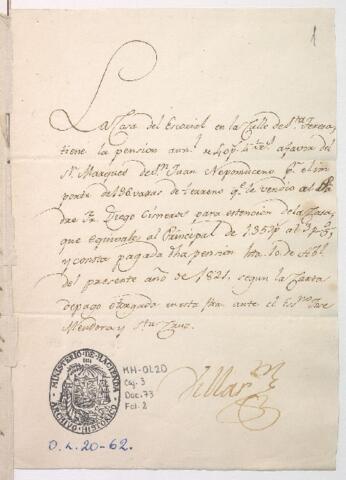 1
La Casa del Escorial en la Calle de Sta. Teresa,
tiene la pension anual de 40 p. a favor del
Sr. Marques de Sn. Juan Nepomuceno pr. el im-
porte de varas de terreno qe. le vendio al Pa-
dre Fr. Diego Cisneros para estencion de la Casa,
que equivale al Principal de 1353 p.
y consta pagada dha. pension hta. 10 de Abl.
del presente año de 1821. segun la Carta
de pago otorgada en esta fha. ante el Esno. Jose
Mendoza y Sta. Cruz.
Villar
MINISTERIO DE HACIENDA
ARCHIVO HISTORICO
MH-OL20
Caj. 3
Doc. 73
Fol. 2
O.L. 20-62.